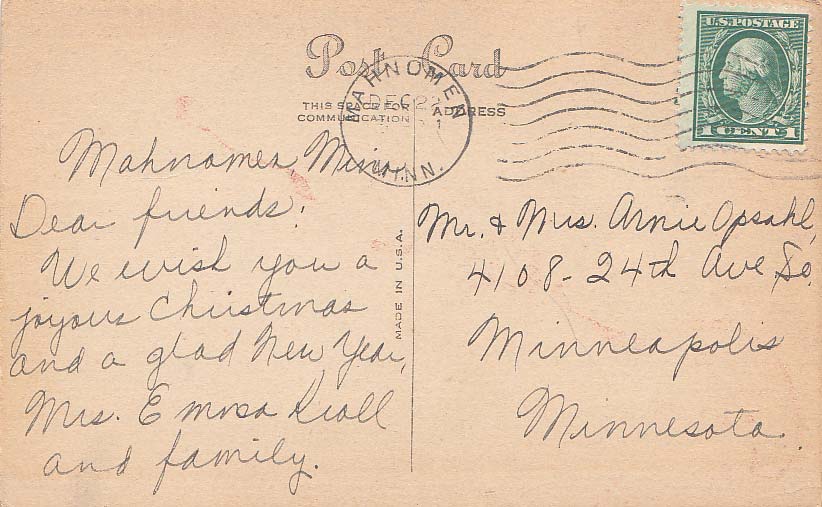 Post Card
U.S. POSTAGE
1 CENT 1
MAHNOMEN
DEC 22
MINN.
THIS SPACE FOR
COMMUNICATION
ADDRESS
Mahnomen, Minn.
Dear friends:
We wish you a
joyous Christmas
and a glad New Year,
Mrs. Emma
and family.
MADE IN U.S.A.
Mr. & Mrs. Arnie Opsahl,
4108-24th Ave. So.
Minneapolis
Minnesota.